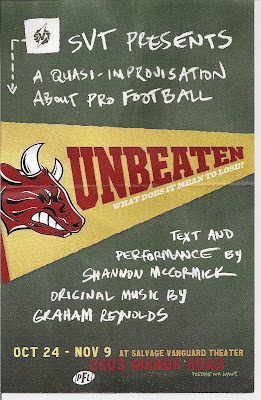 SVT
SVT PRESENTS
A QUASI-IMPROVISATION
ABOUT PRO FOOTBALL
UNBEATEN
WHAT DOES IT MEAN TO LOSE?
TEXT AND
PERFORMANCE BY
SHANNON MCCORMICK
ORIGINAL MUSIC BY
GRAHAM REYNOLDS
OCT 24 - NOV 9 AT SALVAGE VANGUARD THEATER
2803 MANOR ROAD
PFL